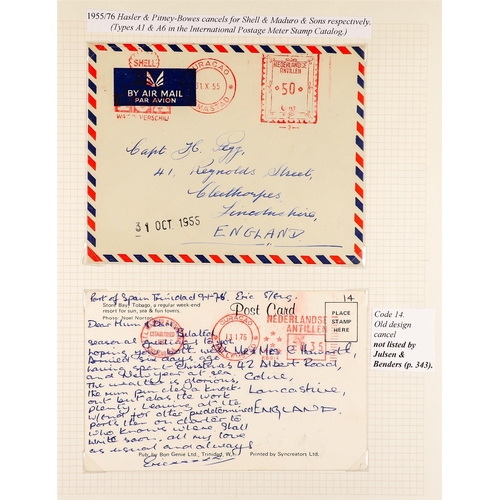 1955/76 Hasler & Pitney-Bowes cancels for Shell & Maduro & Sons respectively.
(Types A1 & A6 in the International Postage Meter Stamp Catalog.)
SHELL
BY AIR MAIL
PAR AVION
CURAÇAO
31.X 55
WILLEMSTAD
NEDERLANDSE
ANTILLEN
50
Capt H. Pegg,
41, Reynolds Street,
Cleethorpes
Lincolnshire,
ENGLAND.
31 OCT 1955
Port of Spain Trinidad 9-1-76. Eric S/Eng.
14
Store Bay, Tobago, a regular week-end
resort for sun, sea & fun lovers.
Photo: Noel Norton
Post Card
PLACE
STAMP
HERE
Dear Mum & Dad, Belated
seasonal greetings to you
hoping you both well.
Arrived two days ago
having spent Christmas
and New year at sea
The weather is glorious,
the Rum Pan Clea a knock
out but alas the work
plenty. Leaving at the
for other predetermined
ports then on charter to
who knows where. Shall
write soon, all my love
as usual and always
Eric
CURAÇAO
13.1 76
NEDERLANDSE
ANTILLEN
35
Mr & Mrs C Haworth,
42 Albert Road,
Colne,
Lancashire,
ENGLAND.
Pub. by Bon Genie Ltd., Trinidad, W.I. Printed by Syncreators Ltd.
Code 14.
Old design
cancel
not listed by
Julsen &
Benders (p. 343).